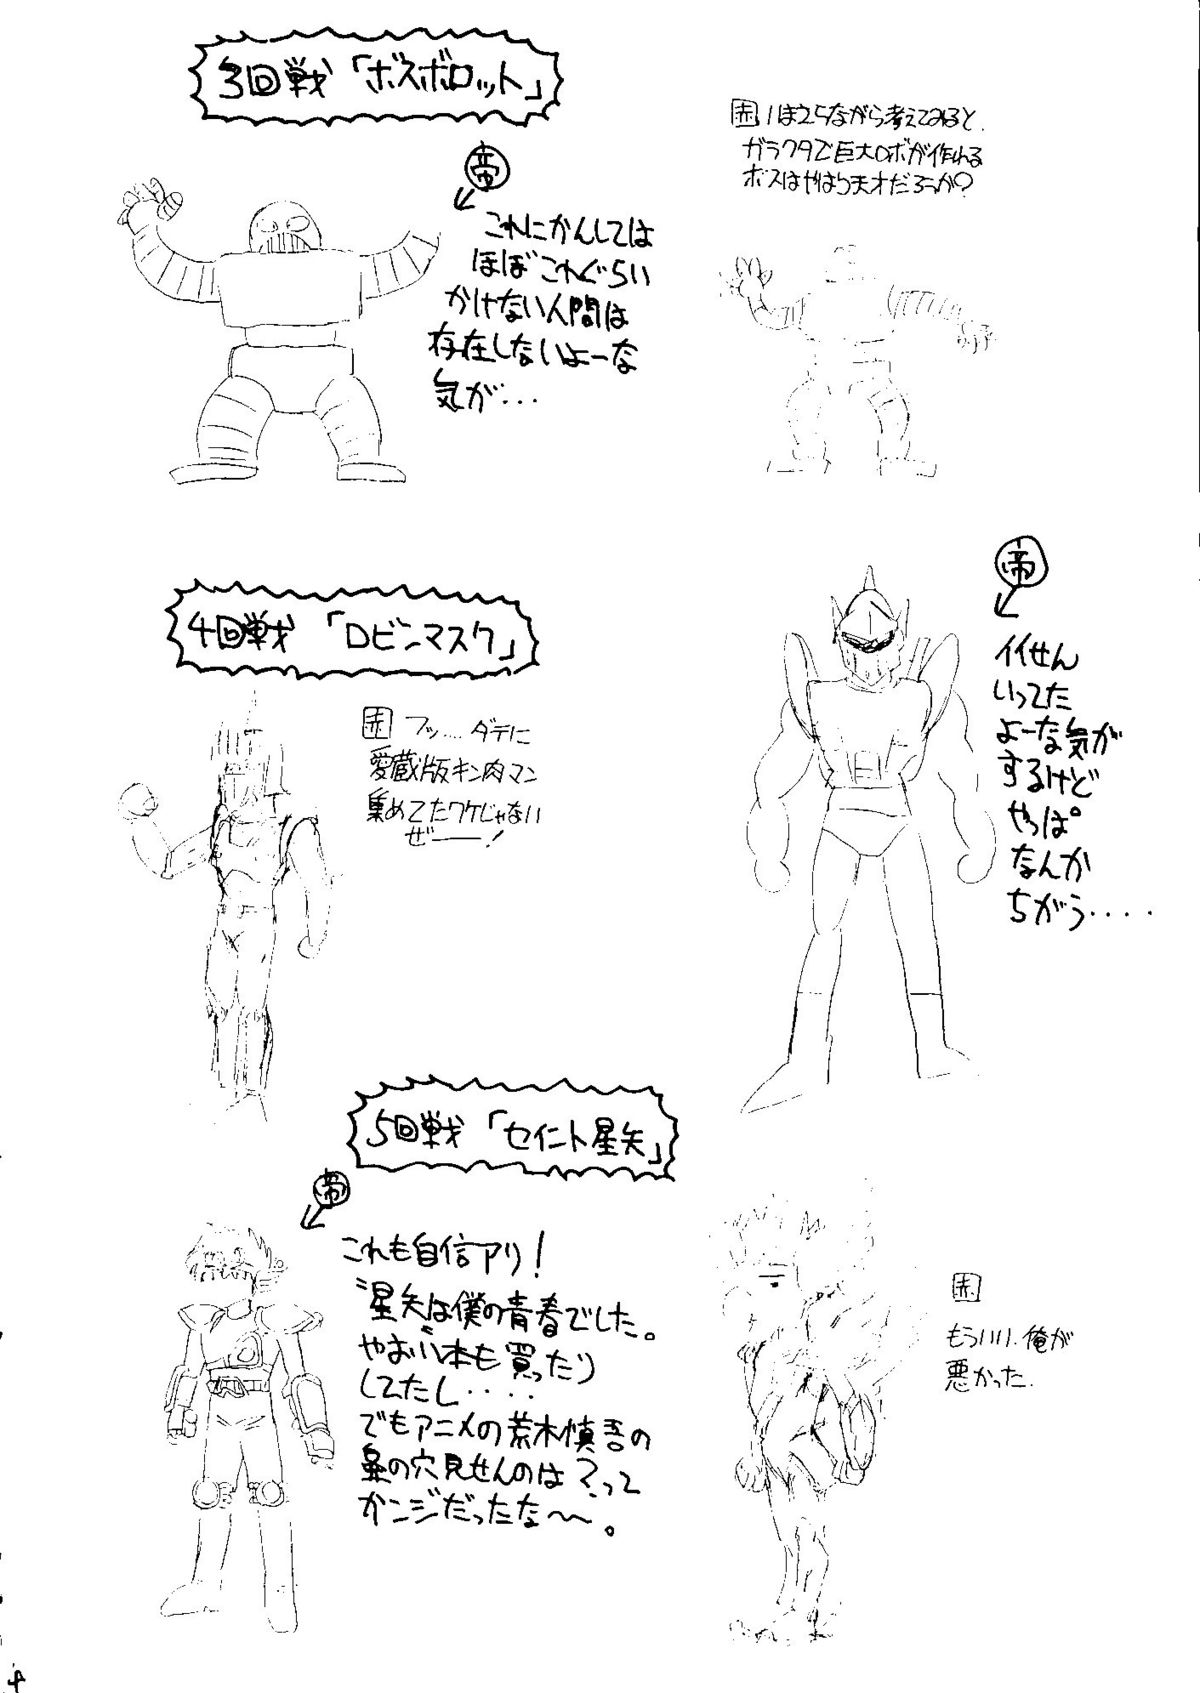 3回戦「ボスボロット」
帝
これにかんしては
ほぼこれぐらい
かけない人間は
存在しないよーな
気が・・・
赤 ほえみながら考えてみると、
ガラクタで巨大ロボが作れる
ボスはやはり天才だろーか?
4回戦「ロビンマスク」
赤 フッ…. ダテに
愛蔵版キン肉マン
集めてたワケじゃない
ぜ——!
帝
イイせん
いってた
よーな気が
するけど
やっぱ
なんか
ちがう・・・・
5回戦「セイント星矢」
帝
これも自信アリ!
"星矢"は僕の青春でした。
やおい本も買ったり
してたし・・・・
でもアニメの荒木慎吾の
鼻の穴見せんのは?って
カンジだったな〜〜。
赤
もういい、俺が
悪かった.
4